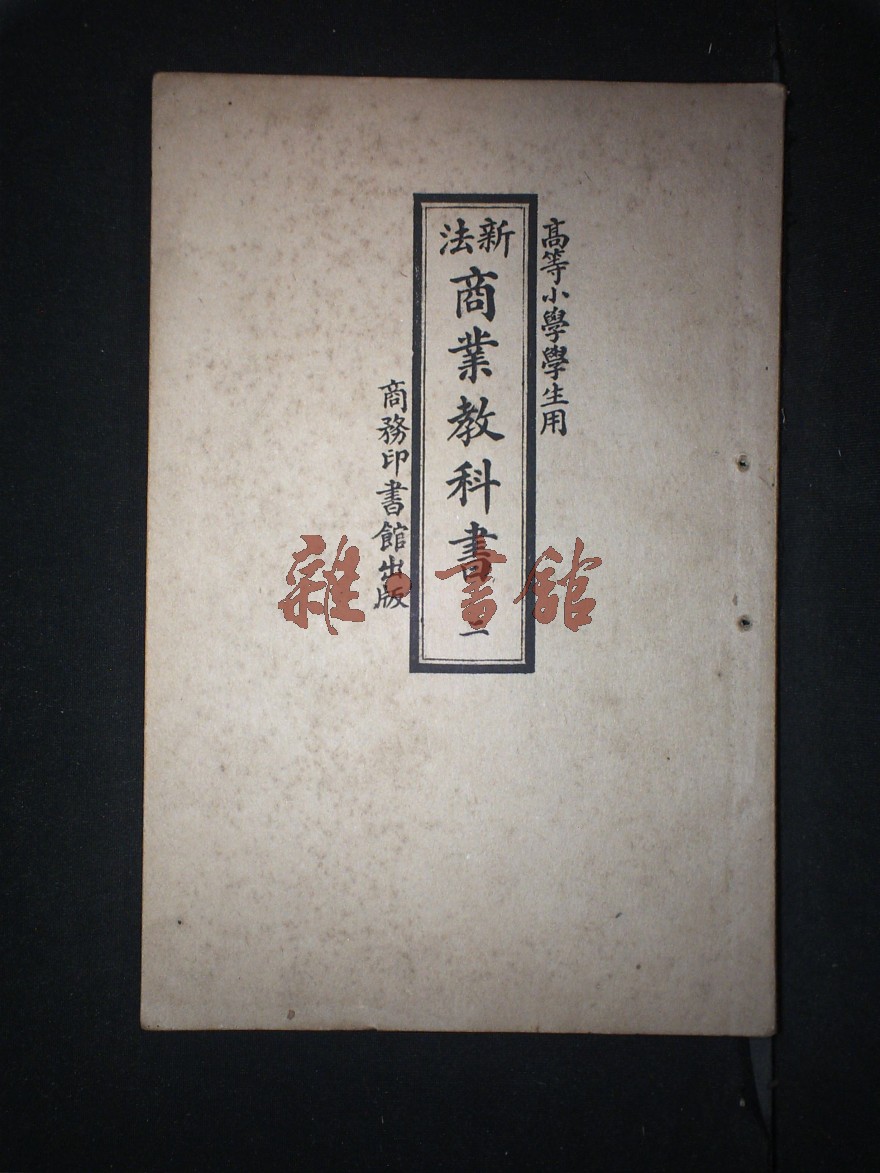 高等小學學生用
新法
商業教科書 二
商務印書館出版
雜·書館